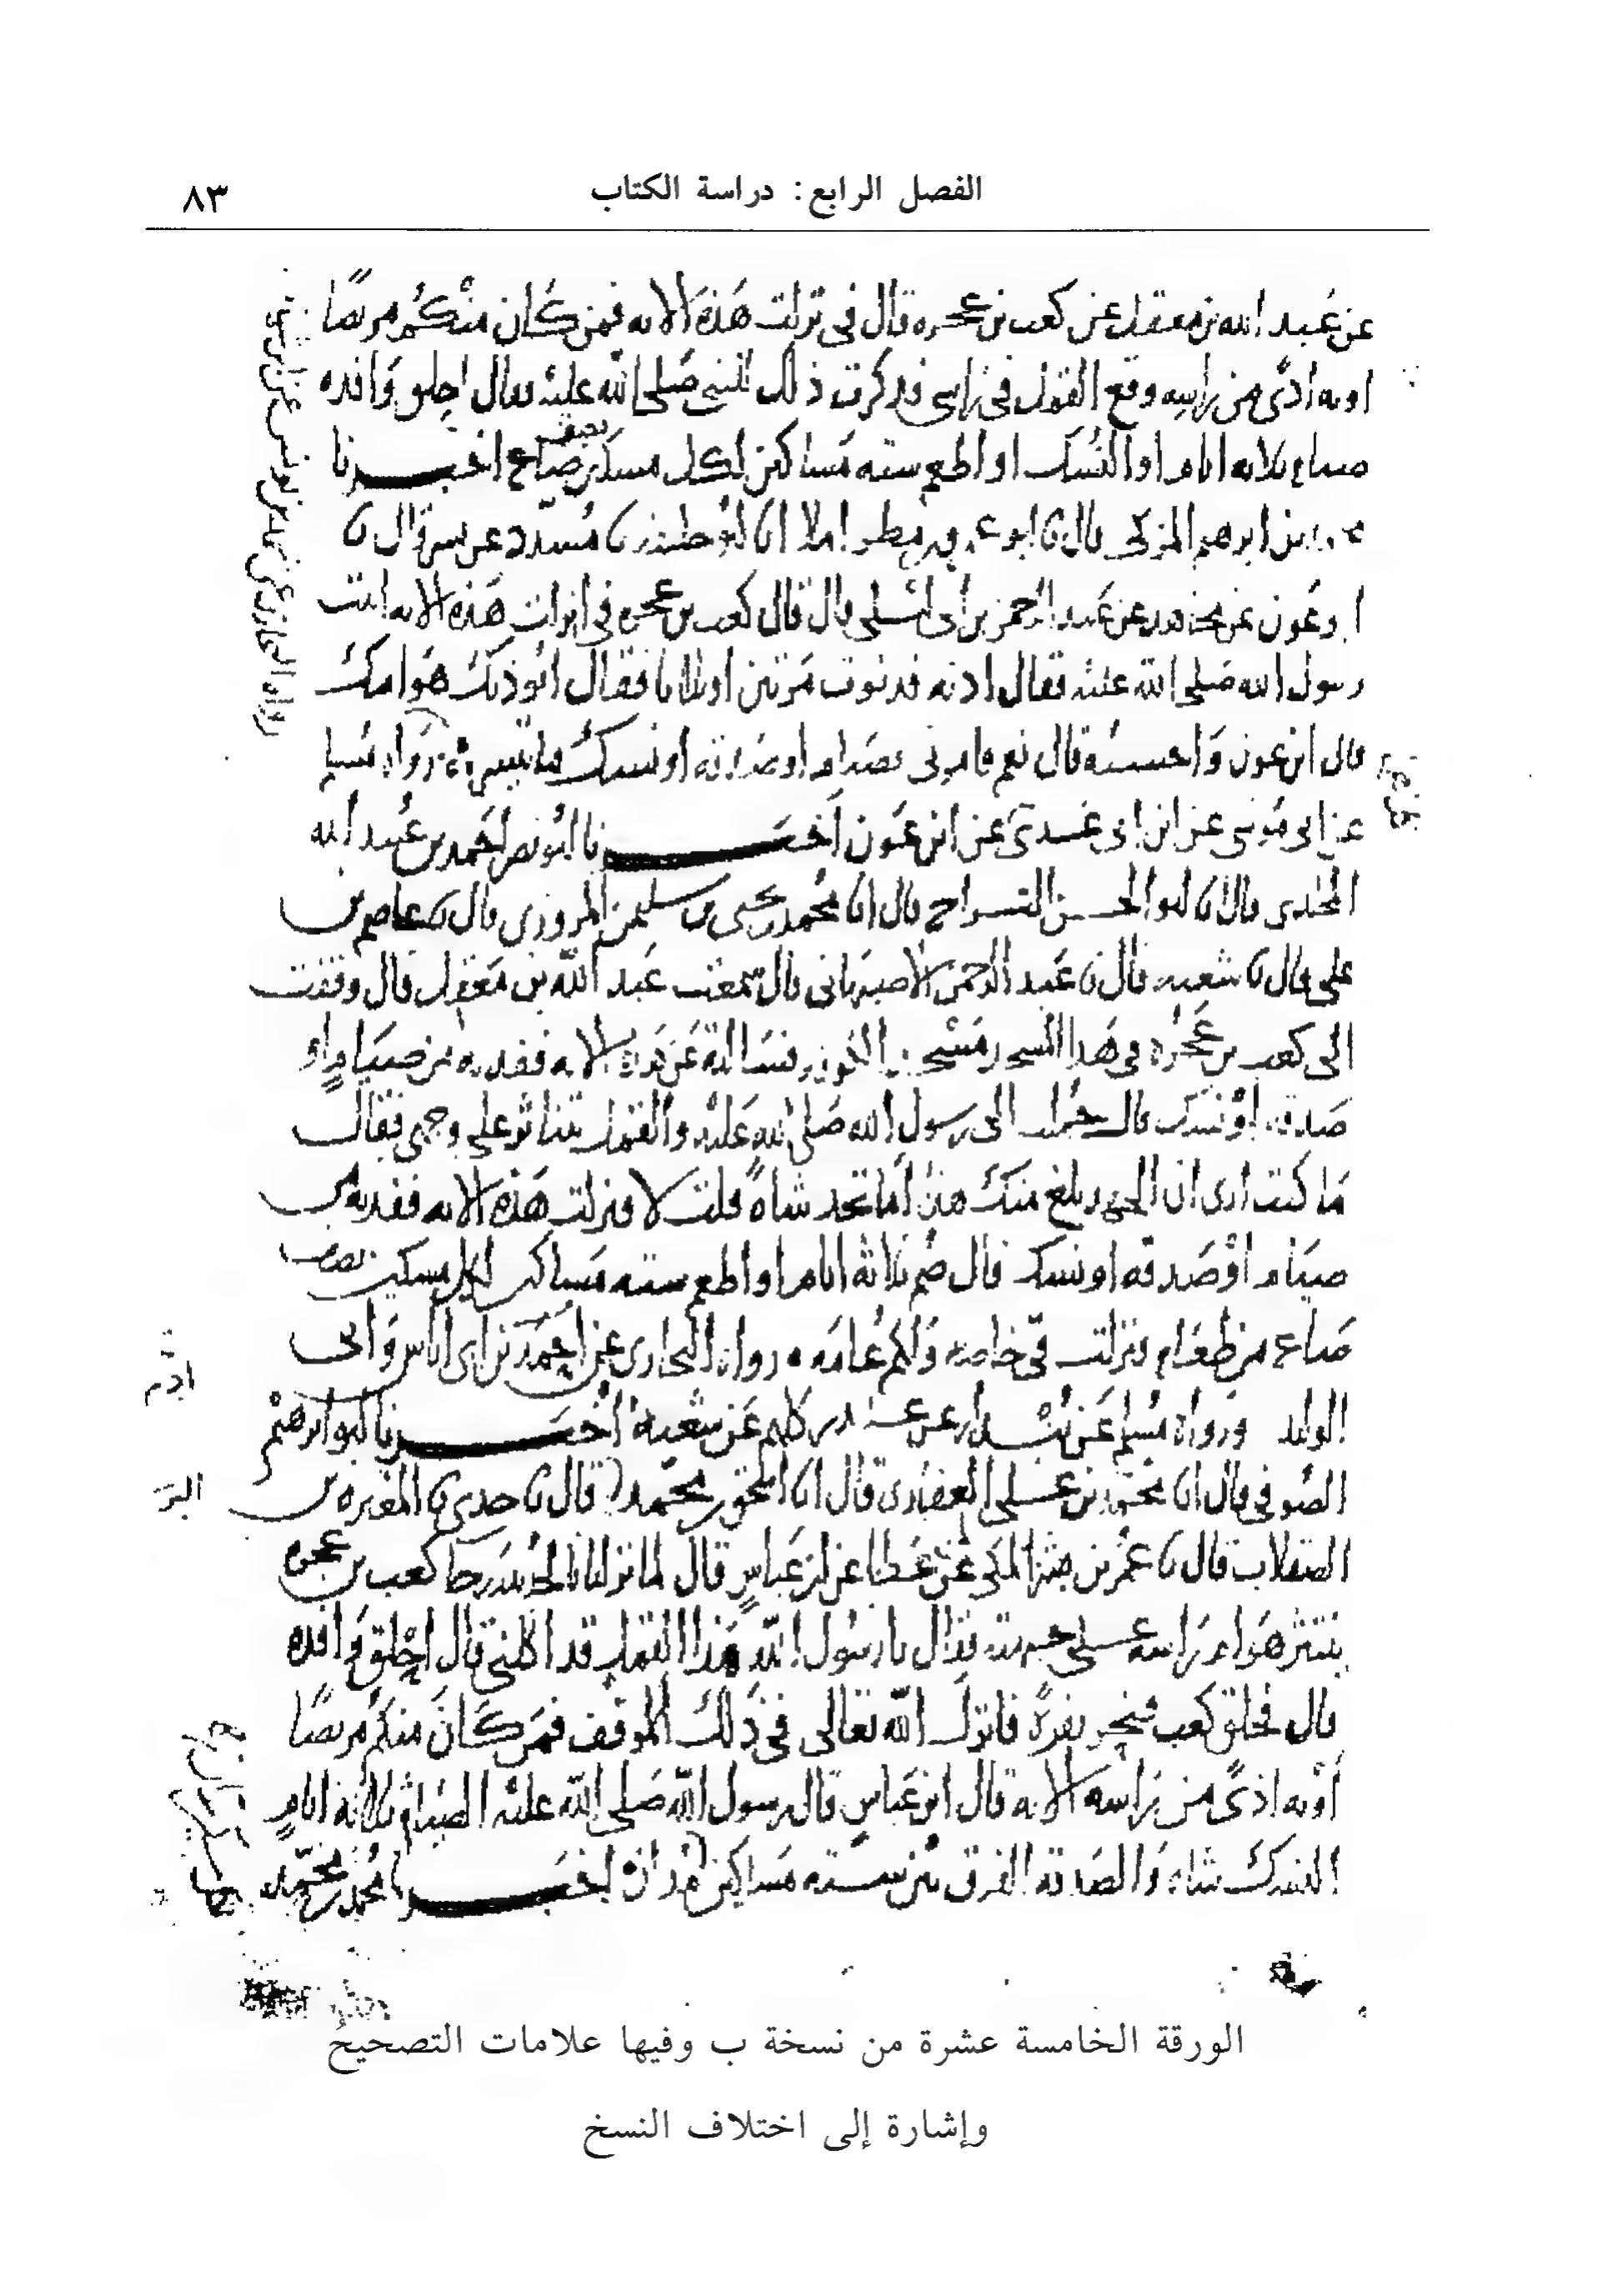 الفصل الرابع: دراسة الكتاب
٨٣
عن عبد الله بن معقل عن كعب بن عجره قال في نزلت هذه الايه فمن كان منكم مريضا
او به اذى من راسه وقع القمل في راسي فذكرت ذلك للنبي صلى الله عليه فقال احلق وافده
صيام ثلاثه ايام او النسك او اطعم سته مساكين لكل مسكين نصف صاع اخبرنا
بن ابرهيم المزكي قال ابو مطر املا انا ابو خليفه مسدد عن بشر قال
عون عن مجاهد عن عبد الرحمن بن ابي ليلى قال قال كعب بن عجره في انزلت هذه الايه اتيت
رسول الله صلى الله عليه فقال ادنه فدنوت مرتين او ثلاثا فقال ايوذيك هوامك
قال ابن عون واحسبه قال نعم فامرني بصيام او صدقه او نسك ما تيسر رواه مسلم
عن ابي موسى عن ابن ابي عدي عن ابن عون اخبرنا ابو نصر احمد بن عبيد الله
المخلدي قال انا ابو الحسن السراج قال انا محمد بن يحيى بن سليمن المروزي قال عاصم بن
علي قال شعبه قال عبد الرحمن الاصبهاني قال سمعت عبد الله بن معقل قال وقفت
الى كعب بن عجره في هذا المسجد مسجد الكوفه فسالته عن هذه الايه ففديه من صيام او
صدقه او نسك قال حملت الى رسول الله صلى الله عليه والقمل يتناثر على وجهي فقال
ما كنت ارى ان الجهد بلغ منك هذا اما تجد شاه قلت لا فنزلت هذه الايه ففديه من
صيام او صدقه او نسك قال صم ثلاثه ايام او اطعم سته مساكين لكل مسكين نصف
صاع من طعام فنزلت في خاصه ولكم عامه رواه البخاري عن احمد بن ابي اياس وابي
ادم
الوليد ورواه مسلم عن بندار عن غندر كلهم عن شعبه اخبرنا ابو ابرهيم
الصوفي قال انا محمد بن علي الغفاري قال انا اسحق بن محمد قال جدي المغيره بن
الصقلاب قال عمر بن المكي عن عطا عن ابن عباس قال لما نزلنا الحديبيه جا كعب بن عجره
ينتثر هوام راسه على جبهته فقال يا رسول الله هذا القمل قد اكلني قال احلق وافده
قال فحلق كعب فنحر بقره فانزل الله تعالى في ذلك الموقف فمن كان منكم مريضا
او به اذى من راسه الايه قال ابن عباس قال رسول الله صلى الله عليه الصيام ثلاثه ايام
النسك شاه والصدقه الفرق بين سته مساكين اخبرنا محمد بن محمد
الورقة الخامسة عشرة من نسخة ب وفيها علامات التصحيح
وإشارة إلى اختلاف النسخ